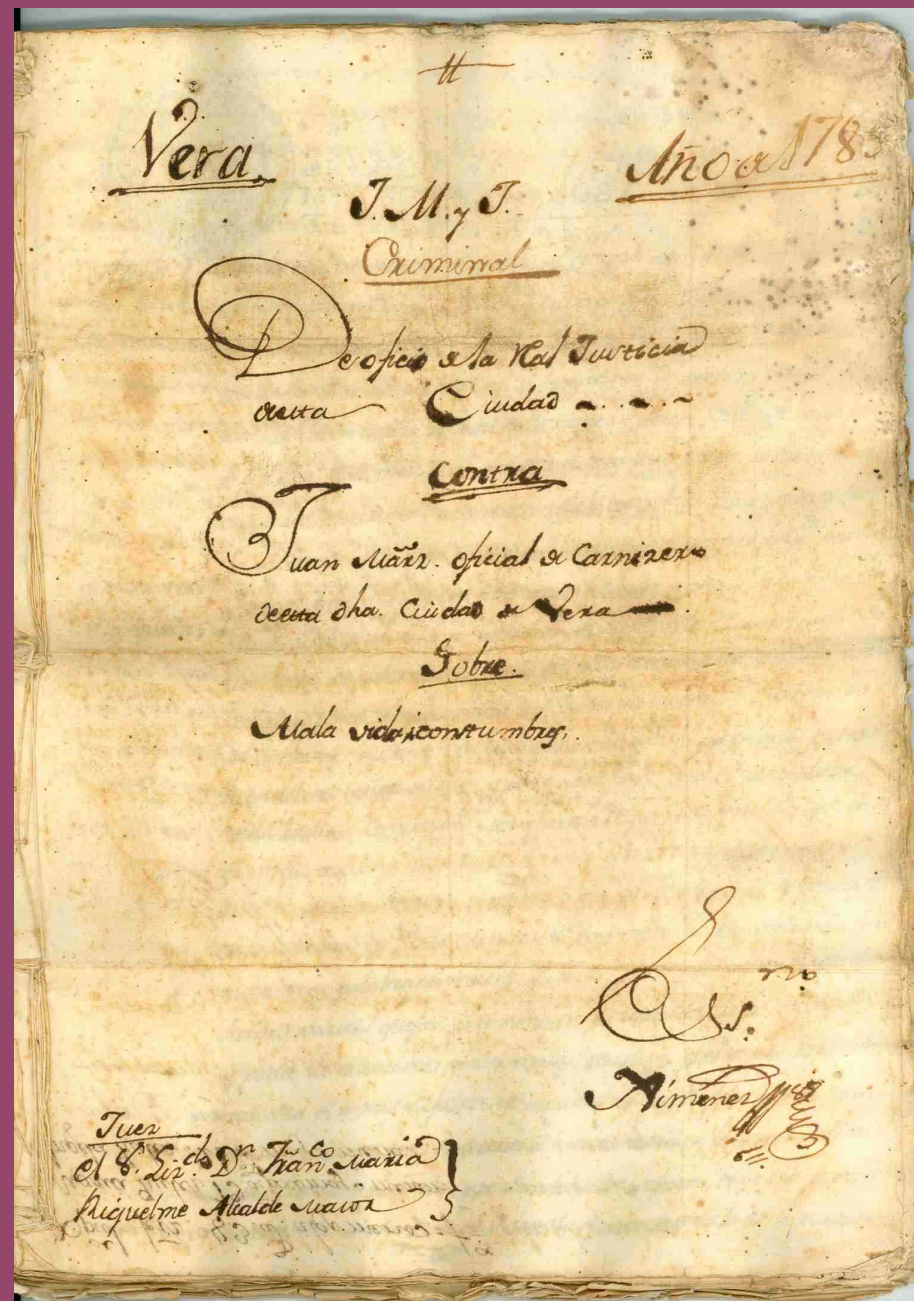 Vera
Año de 178
J. M. y J.
Criminal
De oficio de la Rl Justicia
desta Ciudad
Contra
Juan Mãrz. oficial de Carnizero
deesta dha. Ciudad de Vera
Sobre.
Mala vida, i constumbres.
Es.no
Ximenez
Juez
El Sr. Lizdo Dn Franco Maria
Riquelme Alcalde maior